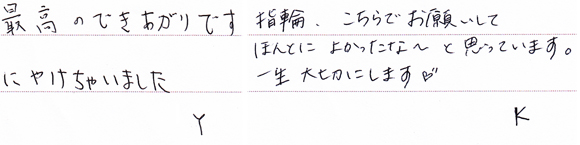 最高のできあがりです
にやけちゃいました
Y
指輪、こちらでお願いして
ほんとに よかったな～ と思っています。
一生 大切にします♡
K